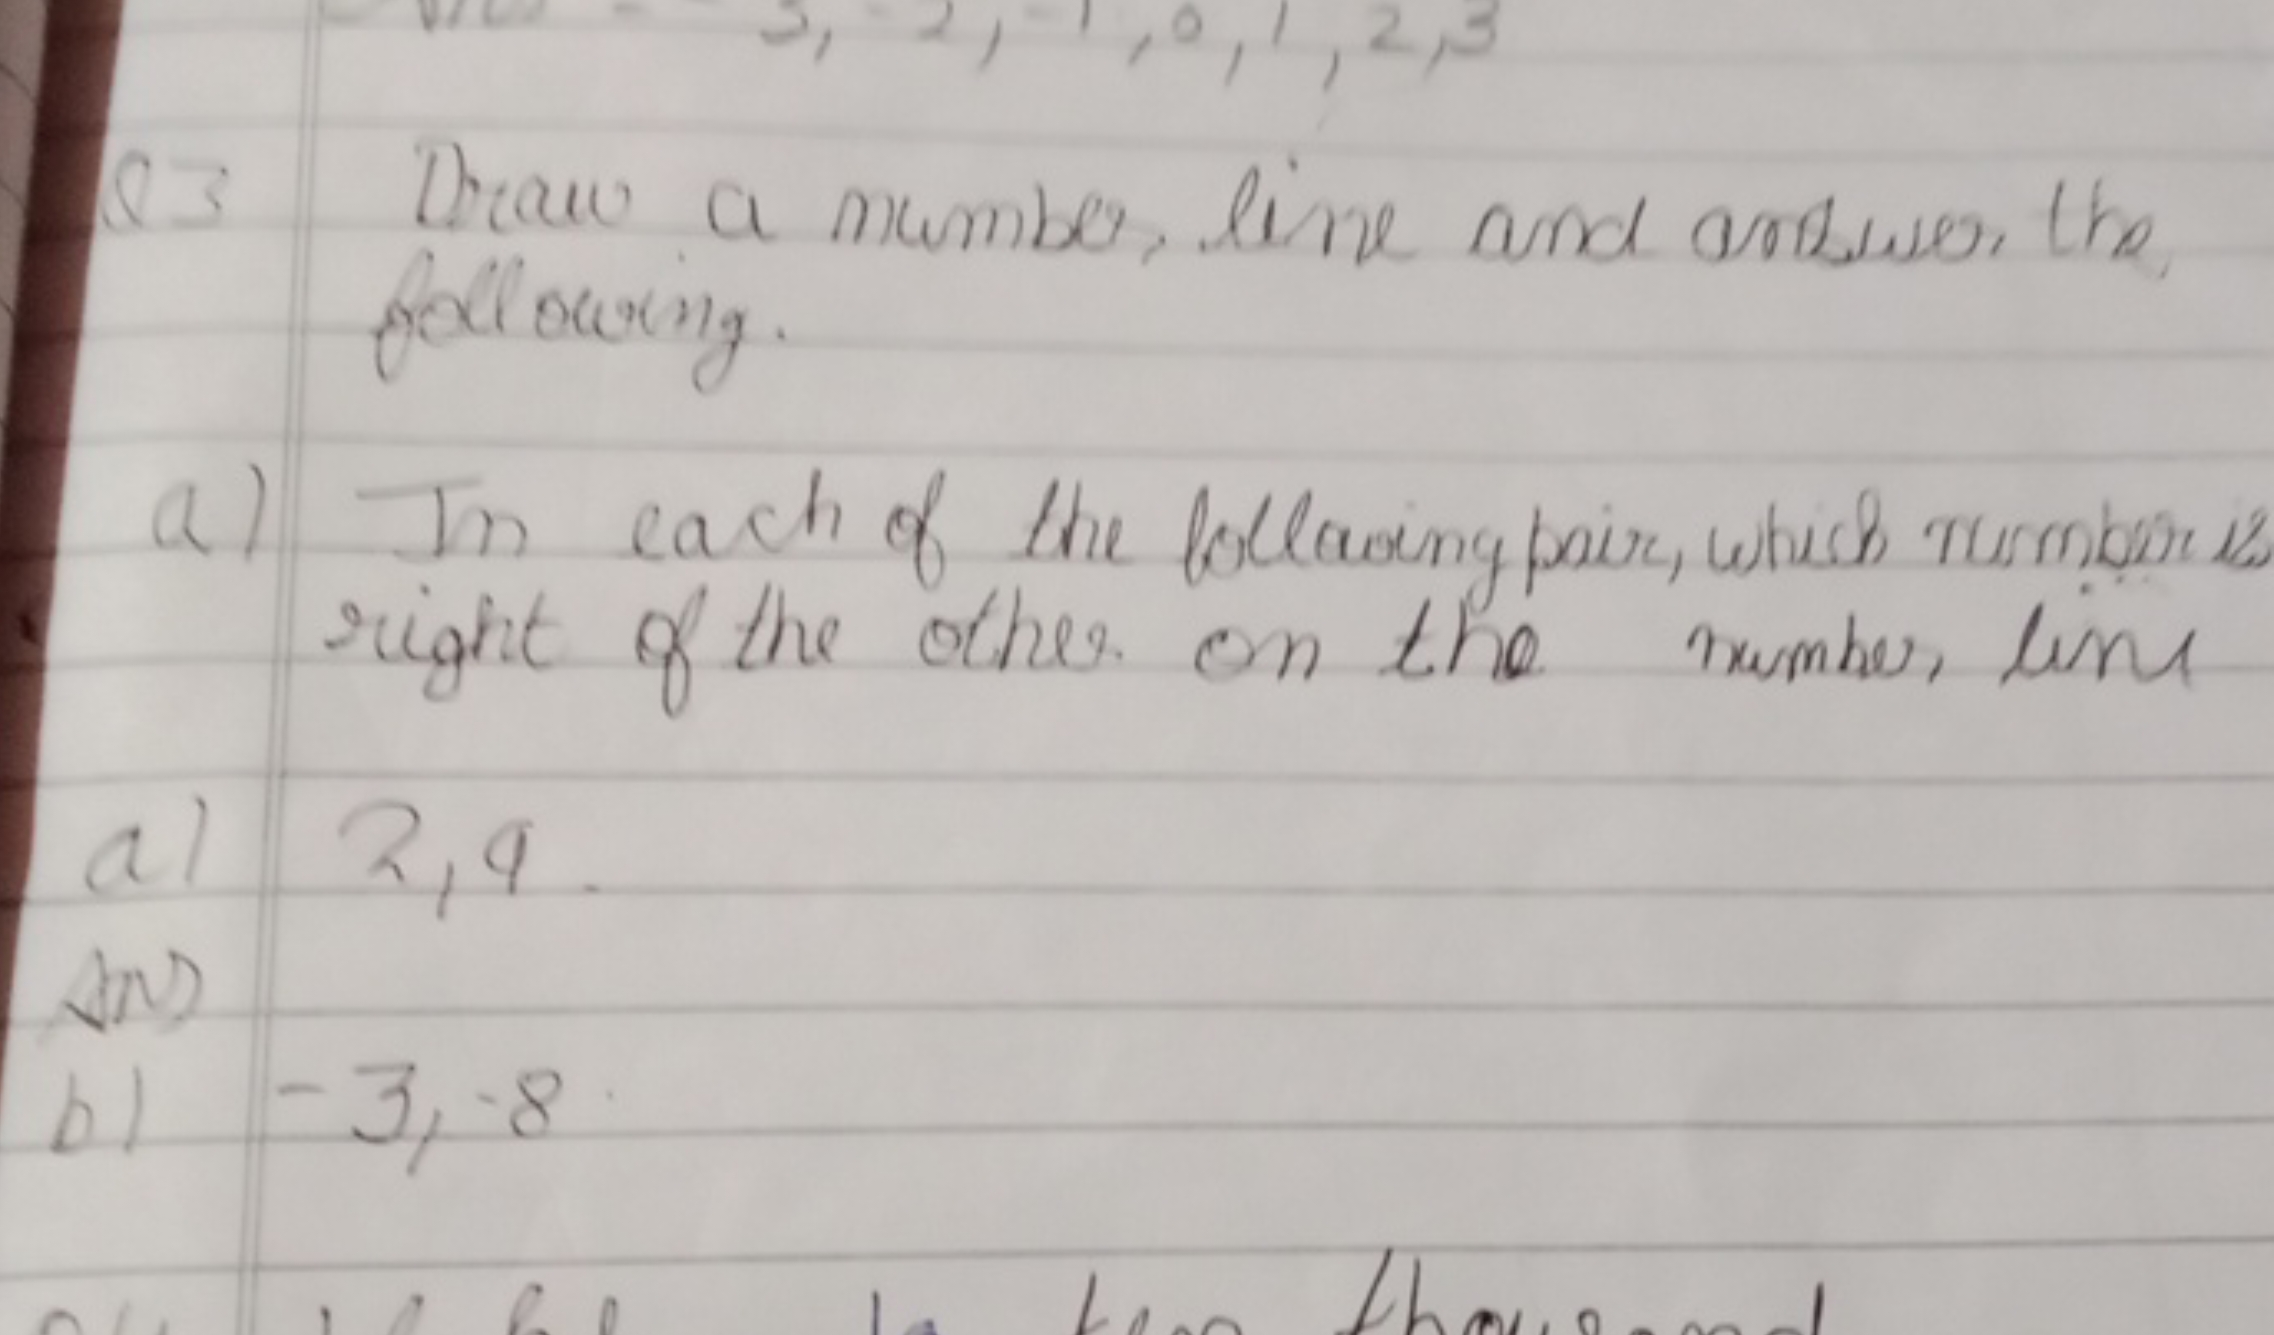 3, -2, -1, 0, 1, 2, 3
Q3 Draw a number line and answer the
following.
a) In each of the following pair, which number is
right of the other on the number line
a) 2, 9.
Ans
b) -3, -8.
ten thousand